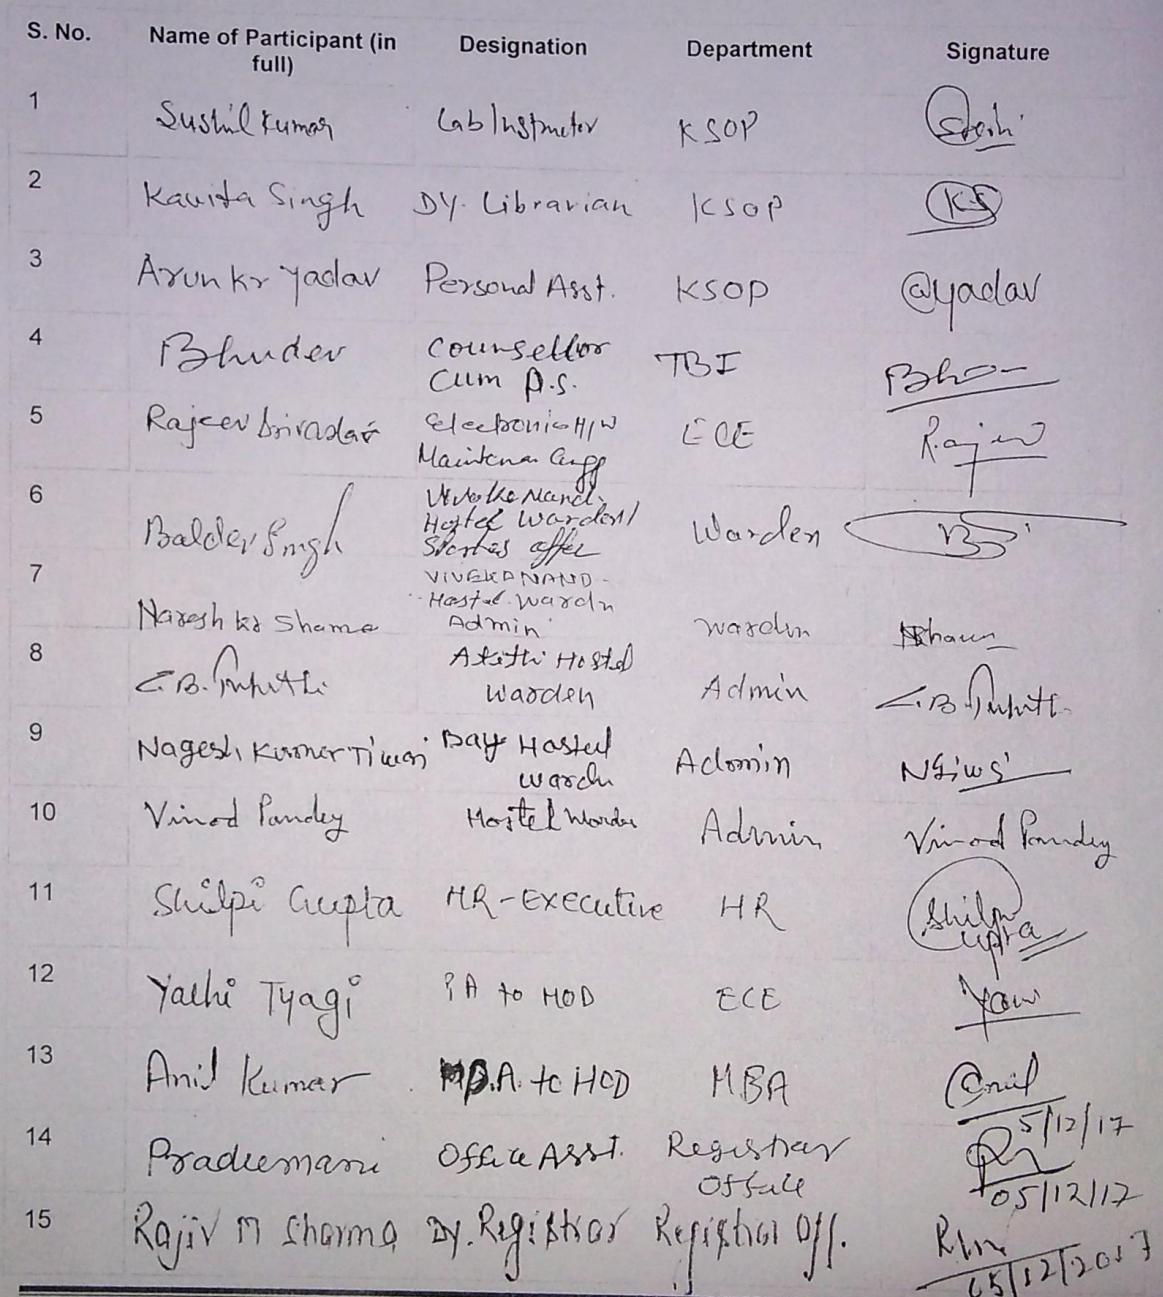 S. No. Name of Participant (in full) Designation Department Signature
1 Sushil Kumar Lab Instructor KSOP
2 Kavita Singh DY. Librarian KSOP KS
3 Arun kr Yadav Personal Asst. KSOP @yadav
4 Bhudev Counsellor Cum P.S. TBI
5 Rajeev Electronic H/W ECE
6 Baldev Singh Hostel Warden/ Warden
7 Naresh kr Sharma VIVEKANAND- Hostel Admin
8 Hostel Warden Admin
9 Nagesh Kumar Tiwari Hostel Admin
10 Vinod Pandey Hostel Admin Vinod Pandey
11 Shilpi Gupta HR-Executive HR Shilpi Gupta
12 Tyagi PA to HOD ECE
13 Anil Kumar P.A. to HOD MBA 5/12/17
14 Office Asst. Registrar Office 05/12/17
15 Rajiv M Sharma Dy. Registrar Registrar Off. 05/12/2017